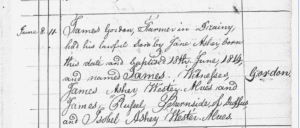 June 8. 11. James Gordon, Farmer in Drainy,
had his lawful Son by Jane Ashey born
this date and baptized 18th June, 1814,
and named James. Witnesses Gordon
James Ashey Wester Alves and
James Burnside of Duffus
and Isobel Ashey Wester Alves.